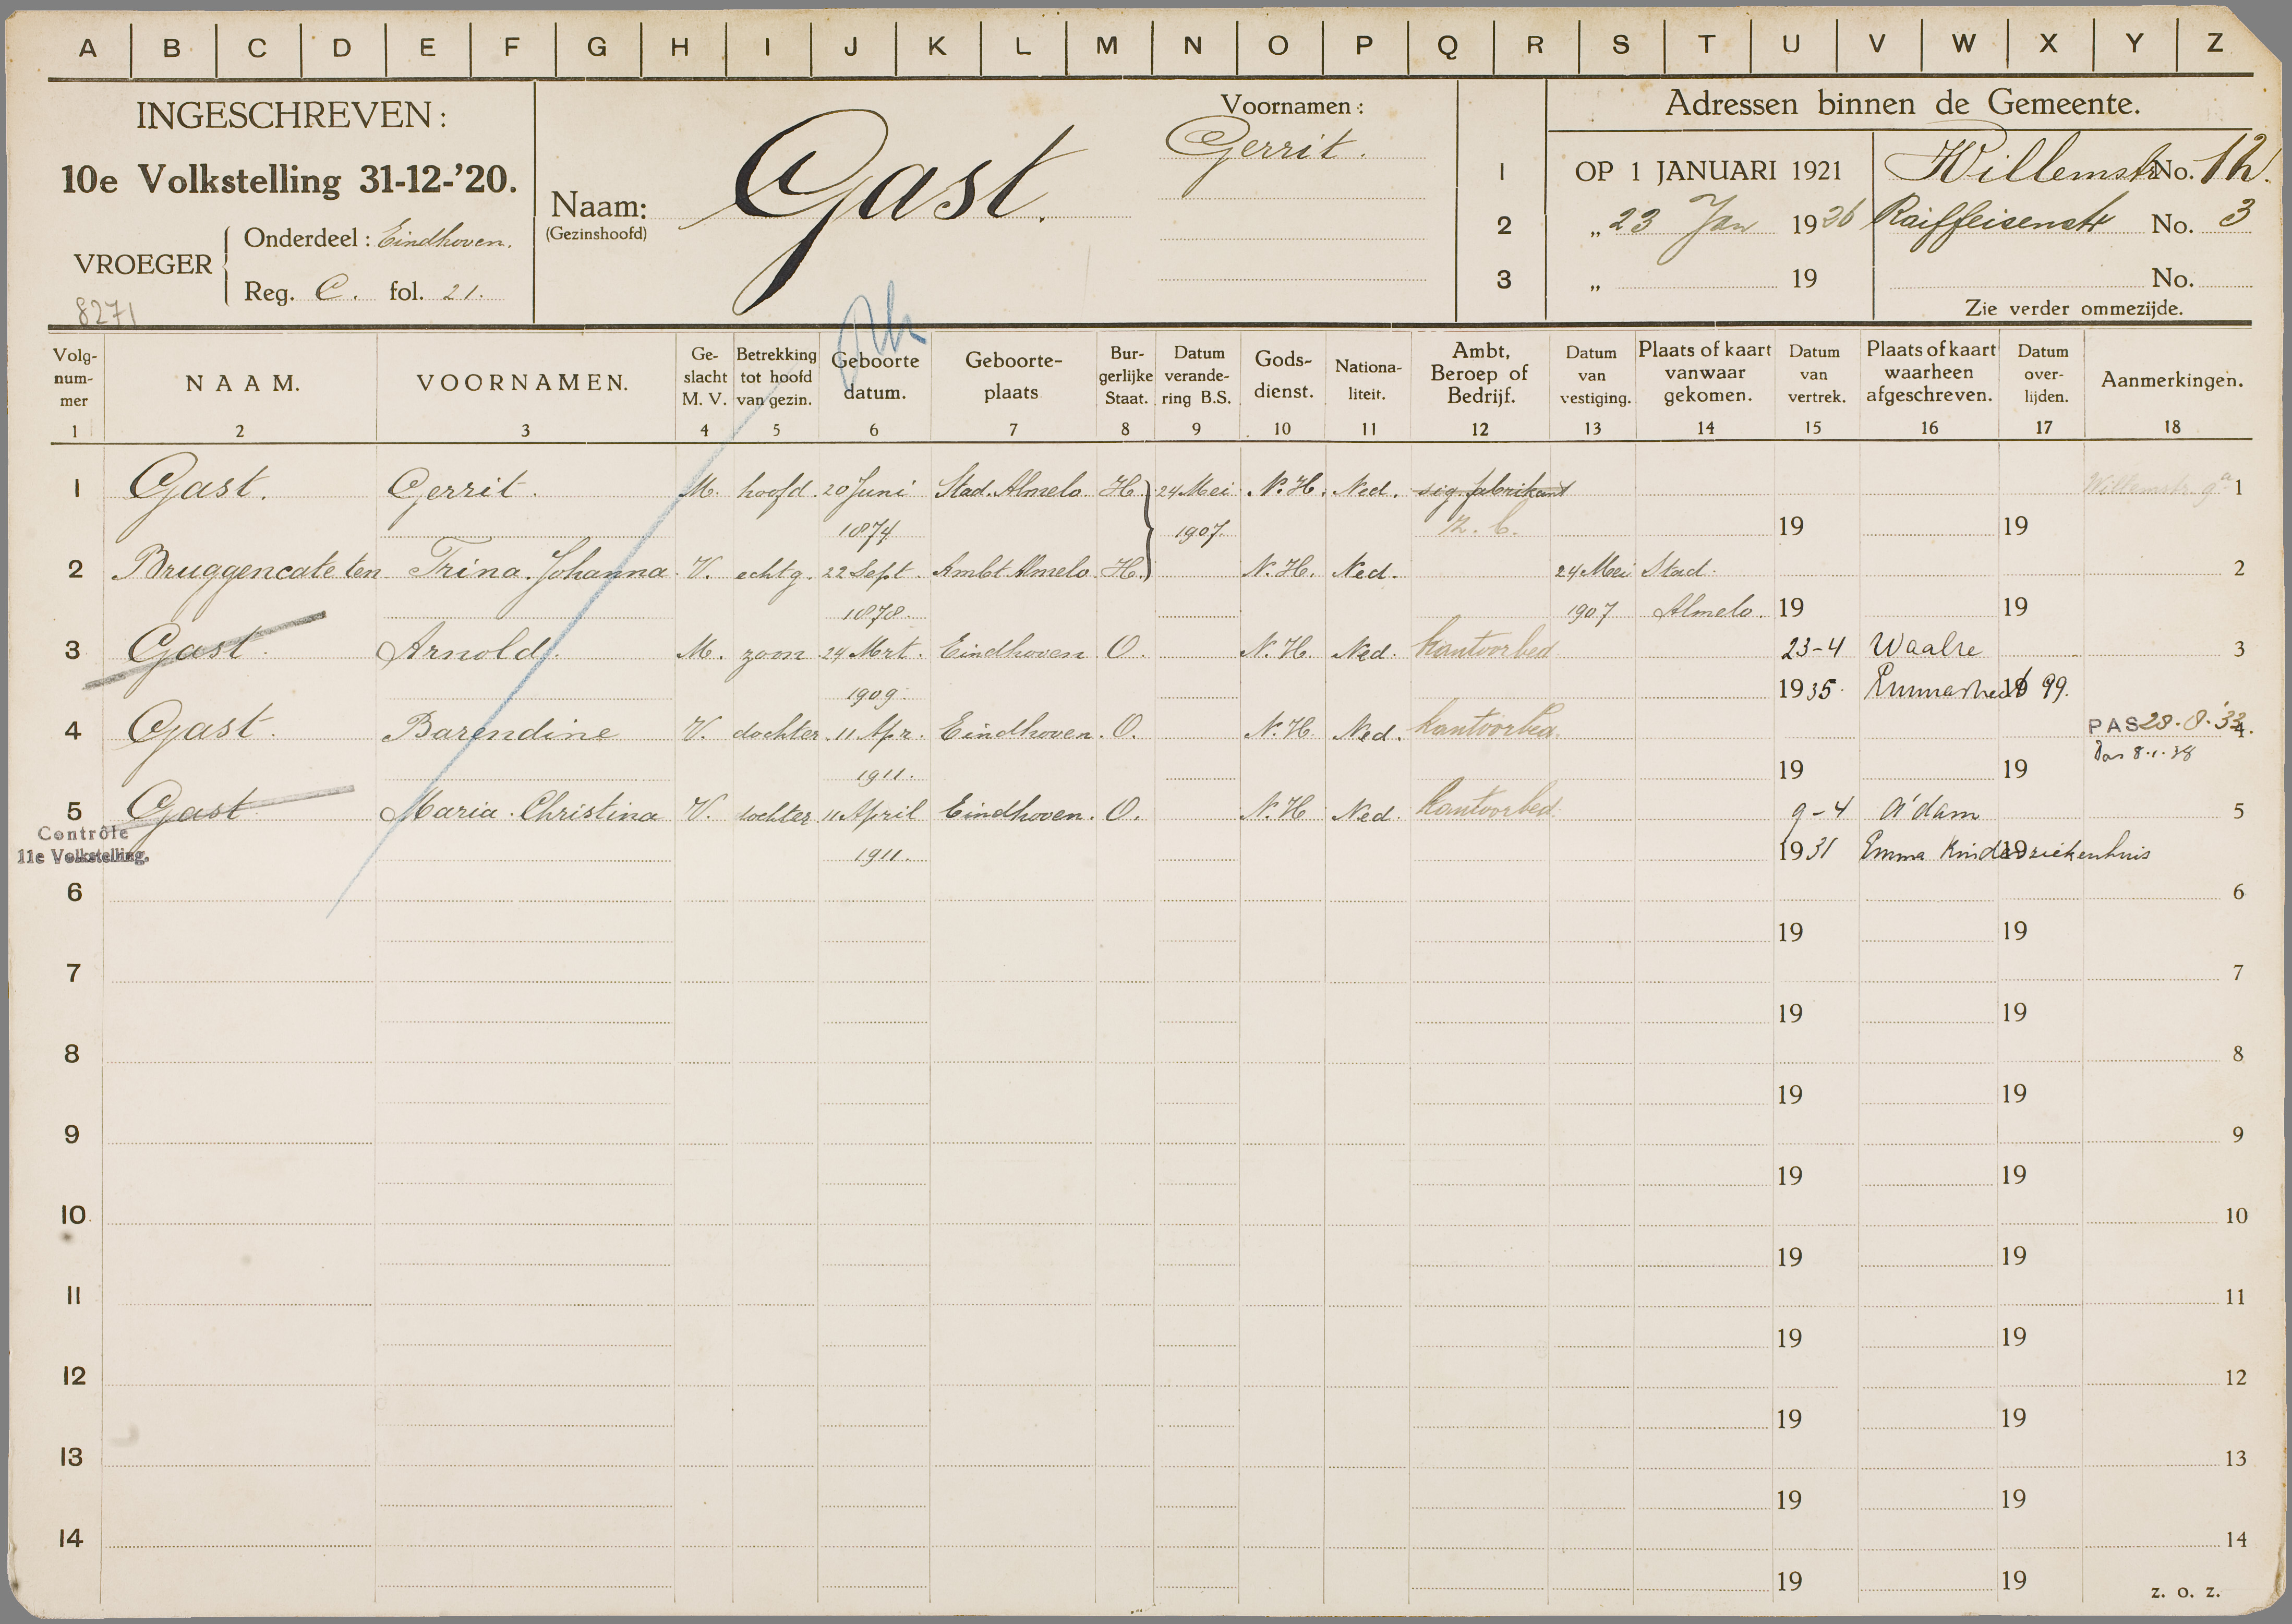 A B C D E F G H I J K L M N O P Q R S T U V W X Y Z
INGESCHREVEN:
10e Volkstelling 31-12-'20.
VROEGER
Onderdeel: Eindhoven.
Reg. C. fol. 21.
8271
Naam: Gast.
(Gezinshoofd)
Voornamen:
Gerrit.
Adressen binnen de Gemeente.
1 OP 1 JANUARI 1921 Willemstr No. 12.
2 „ 23 Jan 1926 Raiffeisenstr No. 3
3 „ 19 No.
Zie verder ommezijde.
Volg-nummer NAAM. VOORNAMEN. Geslacht M. V. Betrekking tot hoofd van gezin. Geboorte datum. Geboorte-plaats Burgerlijke Staat. Datum verande-ring B.S. Gods-dienst. Nationa-liteit. Ambt, Beroep of Bedrijf. Datum van vestiging. Plaats of kaart vanwaar gekomen. Datum van vertrek. Plaats of kaart waarheen afgeschreven. Datum over-lijden. Aanmerkingen.
1 2 3 4 5 6 7 8 9 10 11 12 13 14 15 16 17 18
1 Gast. Gerrit. M. hoofd 20 Juni Stad. Almelo H. 24 Mei N.H. Ned. sig. fabrikant Willemstr. 9a 1
1874 1907. Z. b. 19 19
2 Bruggencate ten Trina Johanna V. echtg. 22 Sept. Ambt Almelo H. N.H. Ned. 24 Mei Stad. 2
1878. 1907 Almelo. 19 19
3 Gast. Arnold. M. zoon 24 Mrt. Eindhoven O. N.H. Ned. kantoorbed 23-4 Waalre 3
1909. 1935. 19 99.
4 Gast. Barendine V. dochter 11 Apr. Eindhoven. O. N.H. Ned. kantoorbed. PAS 28.8.'33. 4
1911. 19 19 Pas 8.1.38
5 Gast Maria Christina V. dochter 11 April Eindhoven. O. N.H. Ned. kantoorbed. 9-4 A'dam 5
Contrôle
11e Volkstelling.
1911. 1931 Emma Kinderziekenhuis 19
6 6
19 19
7 7
19 19
8 8
19 19
9 9
19 19
10 10
19 19
11 11
19 19
12 12
19 19
13 13
19 19
14 14
19 19
z. o. z.